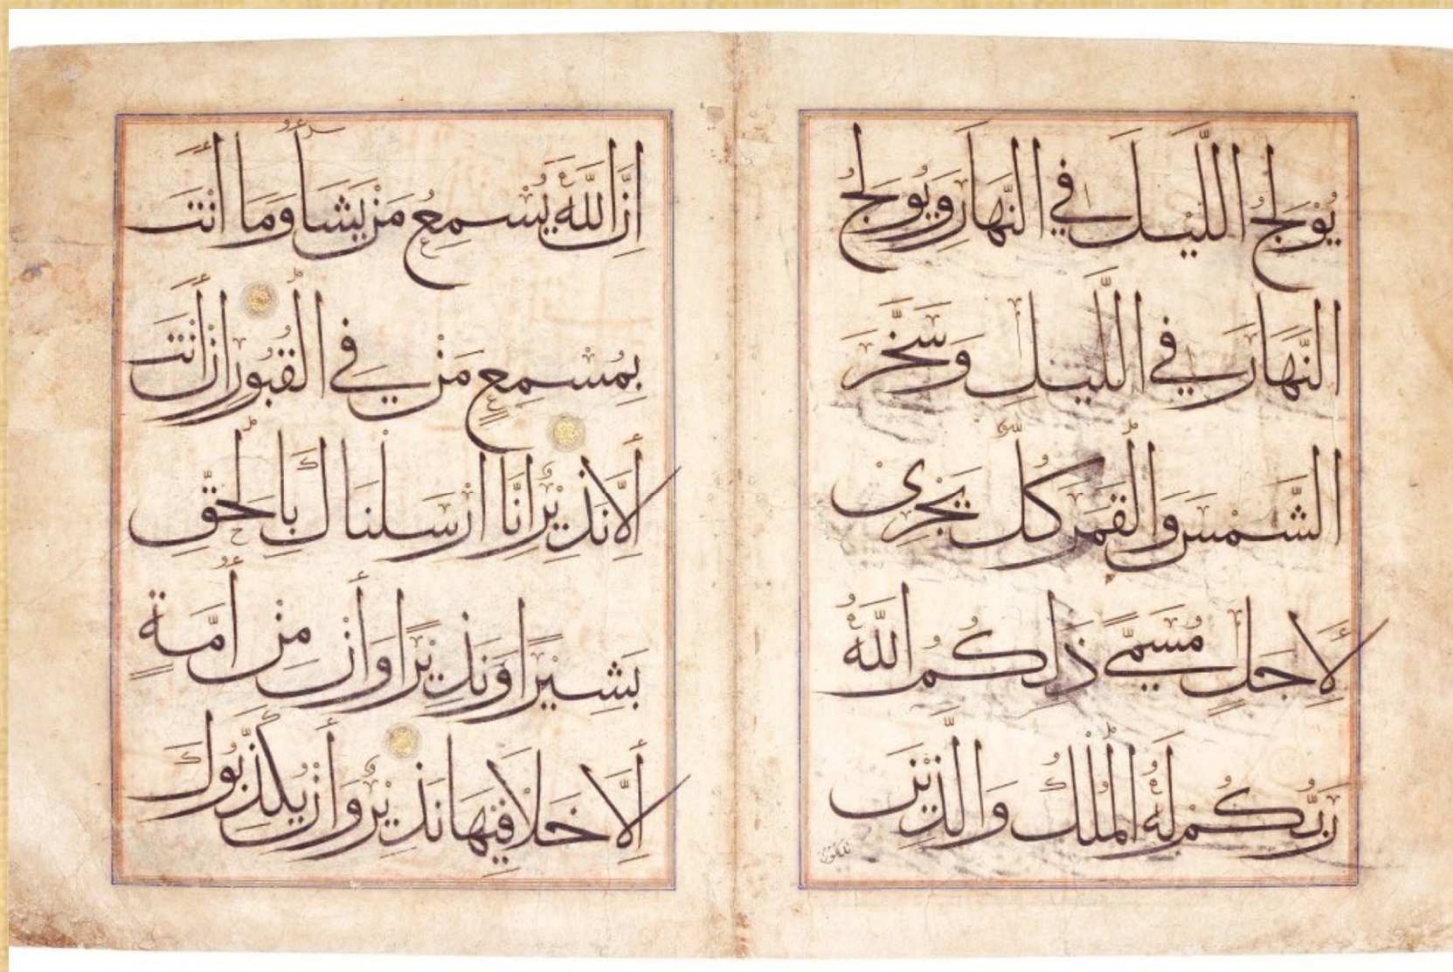 يُوْلِجُ اللَّيْلَ فِي النَّهَارِ وَيُوْلِجُ
النَّهَارَ فِي اللَّيْلِ وَسَخَّرَ
الشَّمْسَ وَالْقَمَرَ كُلٌّ يَجْرِى
لِأَجَلٍ مُسَمًّى ذَلِكُمُ اللَّهُ
رَبُّكُمْ لَهُ الْمُلْكُ وَالَّذِيْنَ
اِنَّ اللَّهَ يُسْمِعُ مَنْ يَشَاءُ وَمَا أَنْتَ
بِمُسْمِعٍ مَنْ فِي الْقُبُورِ اِنْ أَنْتَ
أِلَّا نَذِيْرٌ اِنَّا اَرْسَلْنَاكَ بِالْحَقِّ
بَشِيْرًا وَنَذِيْرًا وَأِنْ مِنْ أُمَّةٍ
أِلَّا خَلَا فِيْهَا نَذِيْرٌ وَأِنْ يُكَذِّبُوكَ